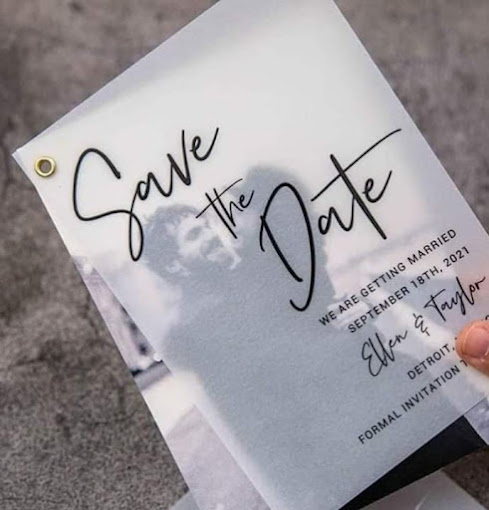 Save
the
Date
WE ARE GETTING MARRIED
SEPTEMBER 18TH, 2021
Ellen & Taylor
DETROIT,
FORMAL INVITATION